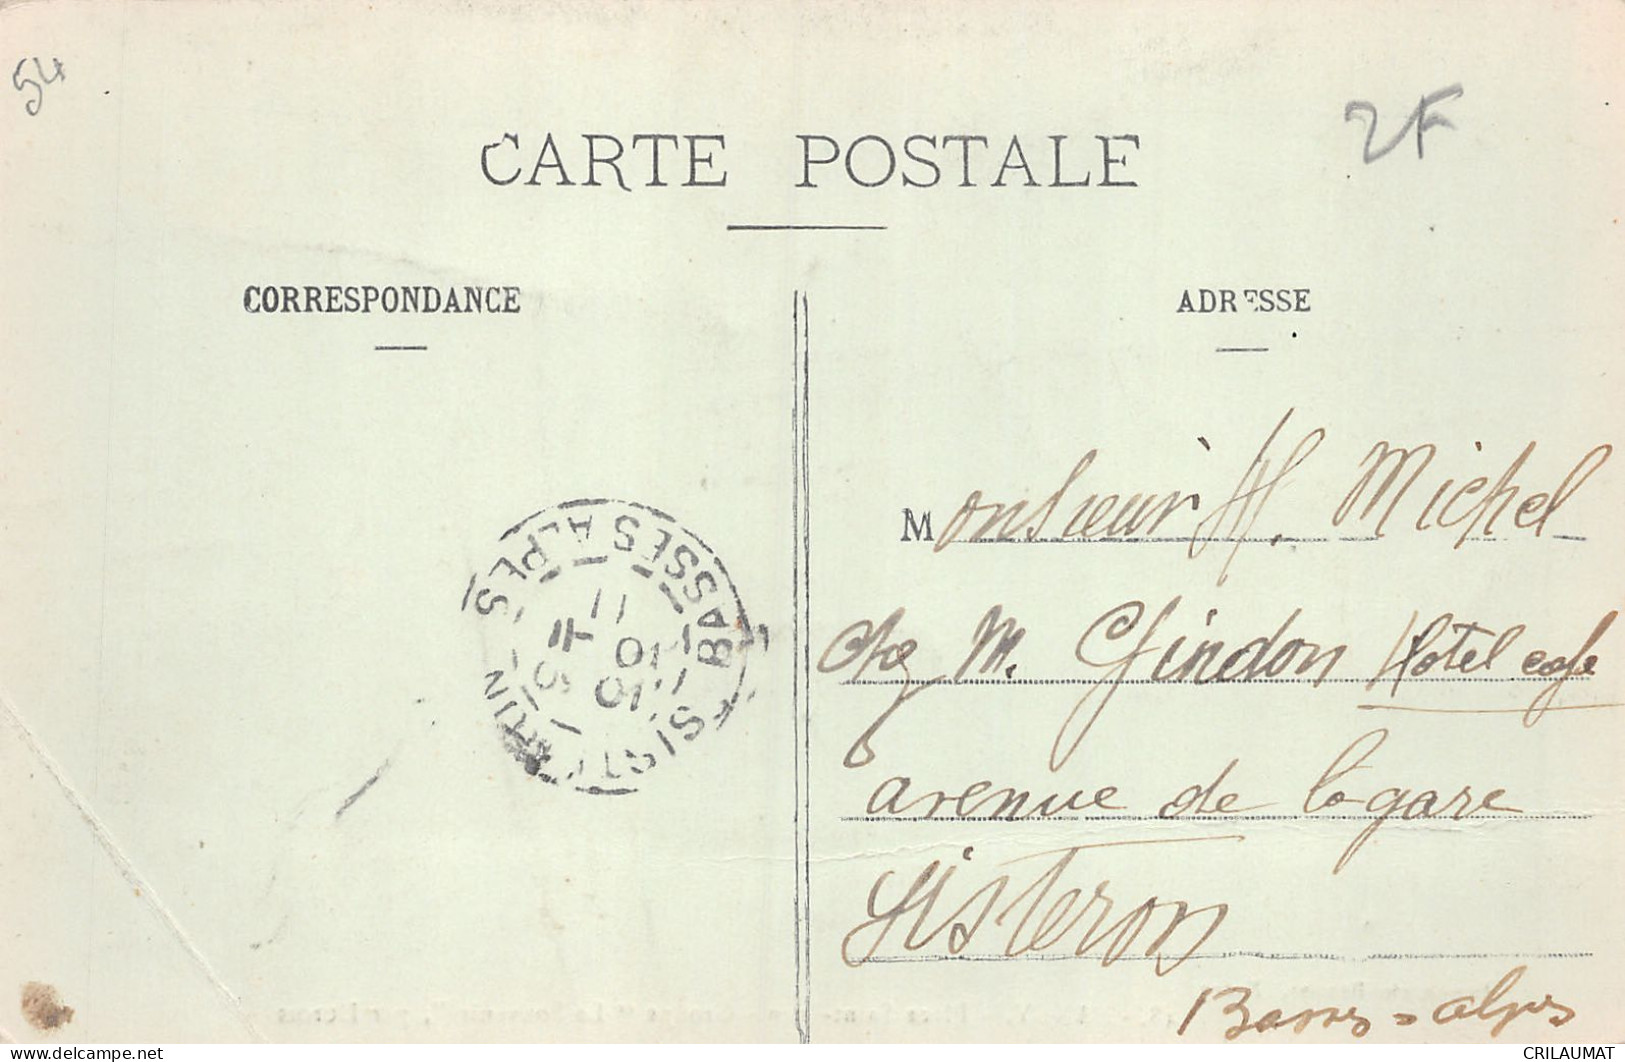 54
2F
CARTE POSTALE
CORRESPONDANCE
ADRESSE
Monsieur H. Michel
chez M. Gindon Hôtel café
avenue de la gare
Sisteron
Basses-alpes
SISTERON
BASSES ALPES
www.delcampe.net
CRILAUMAT